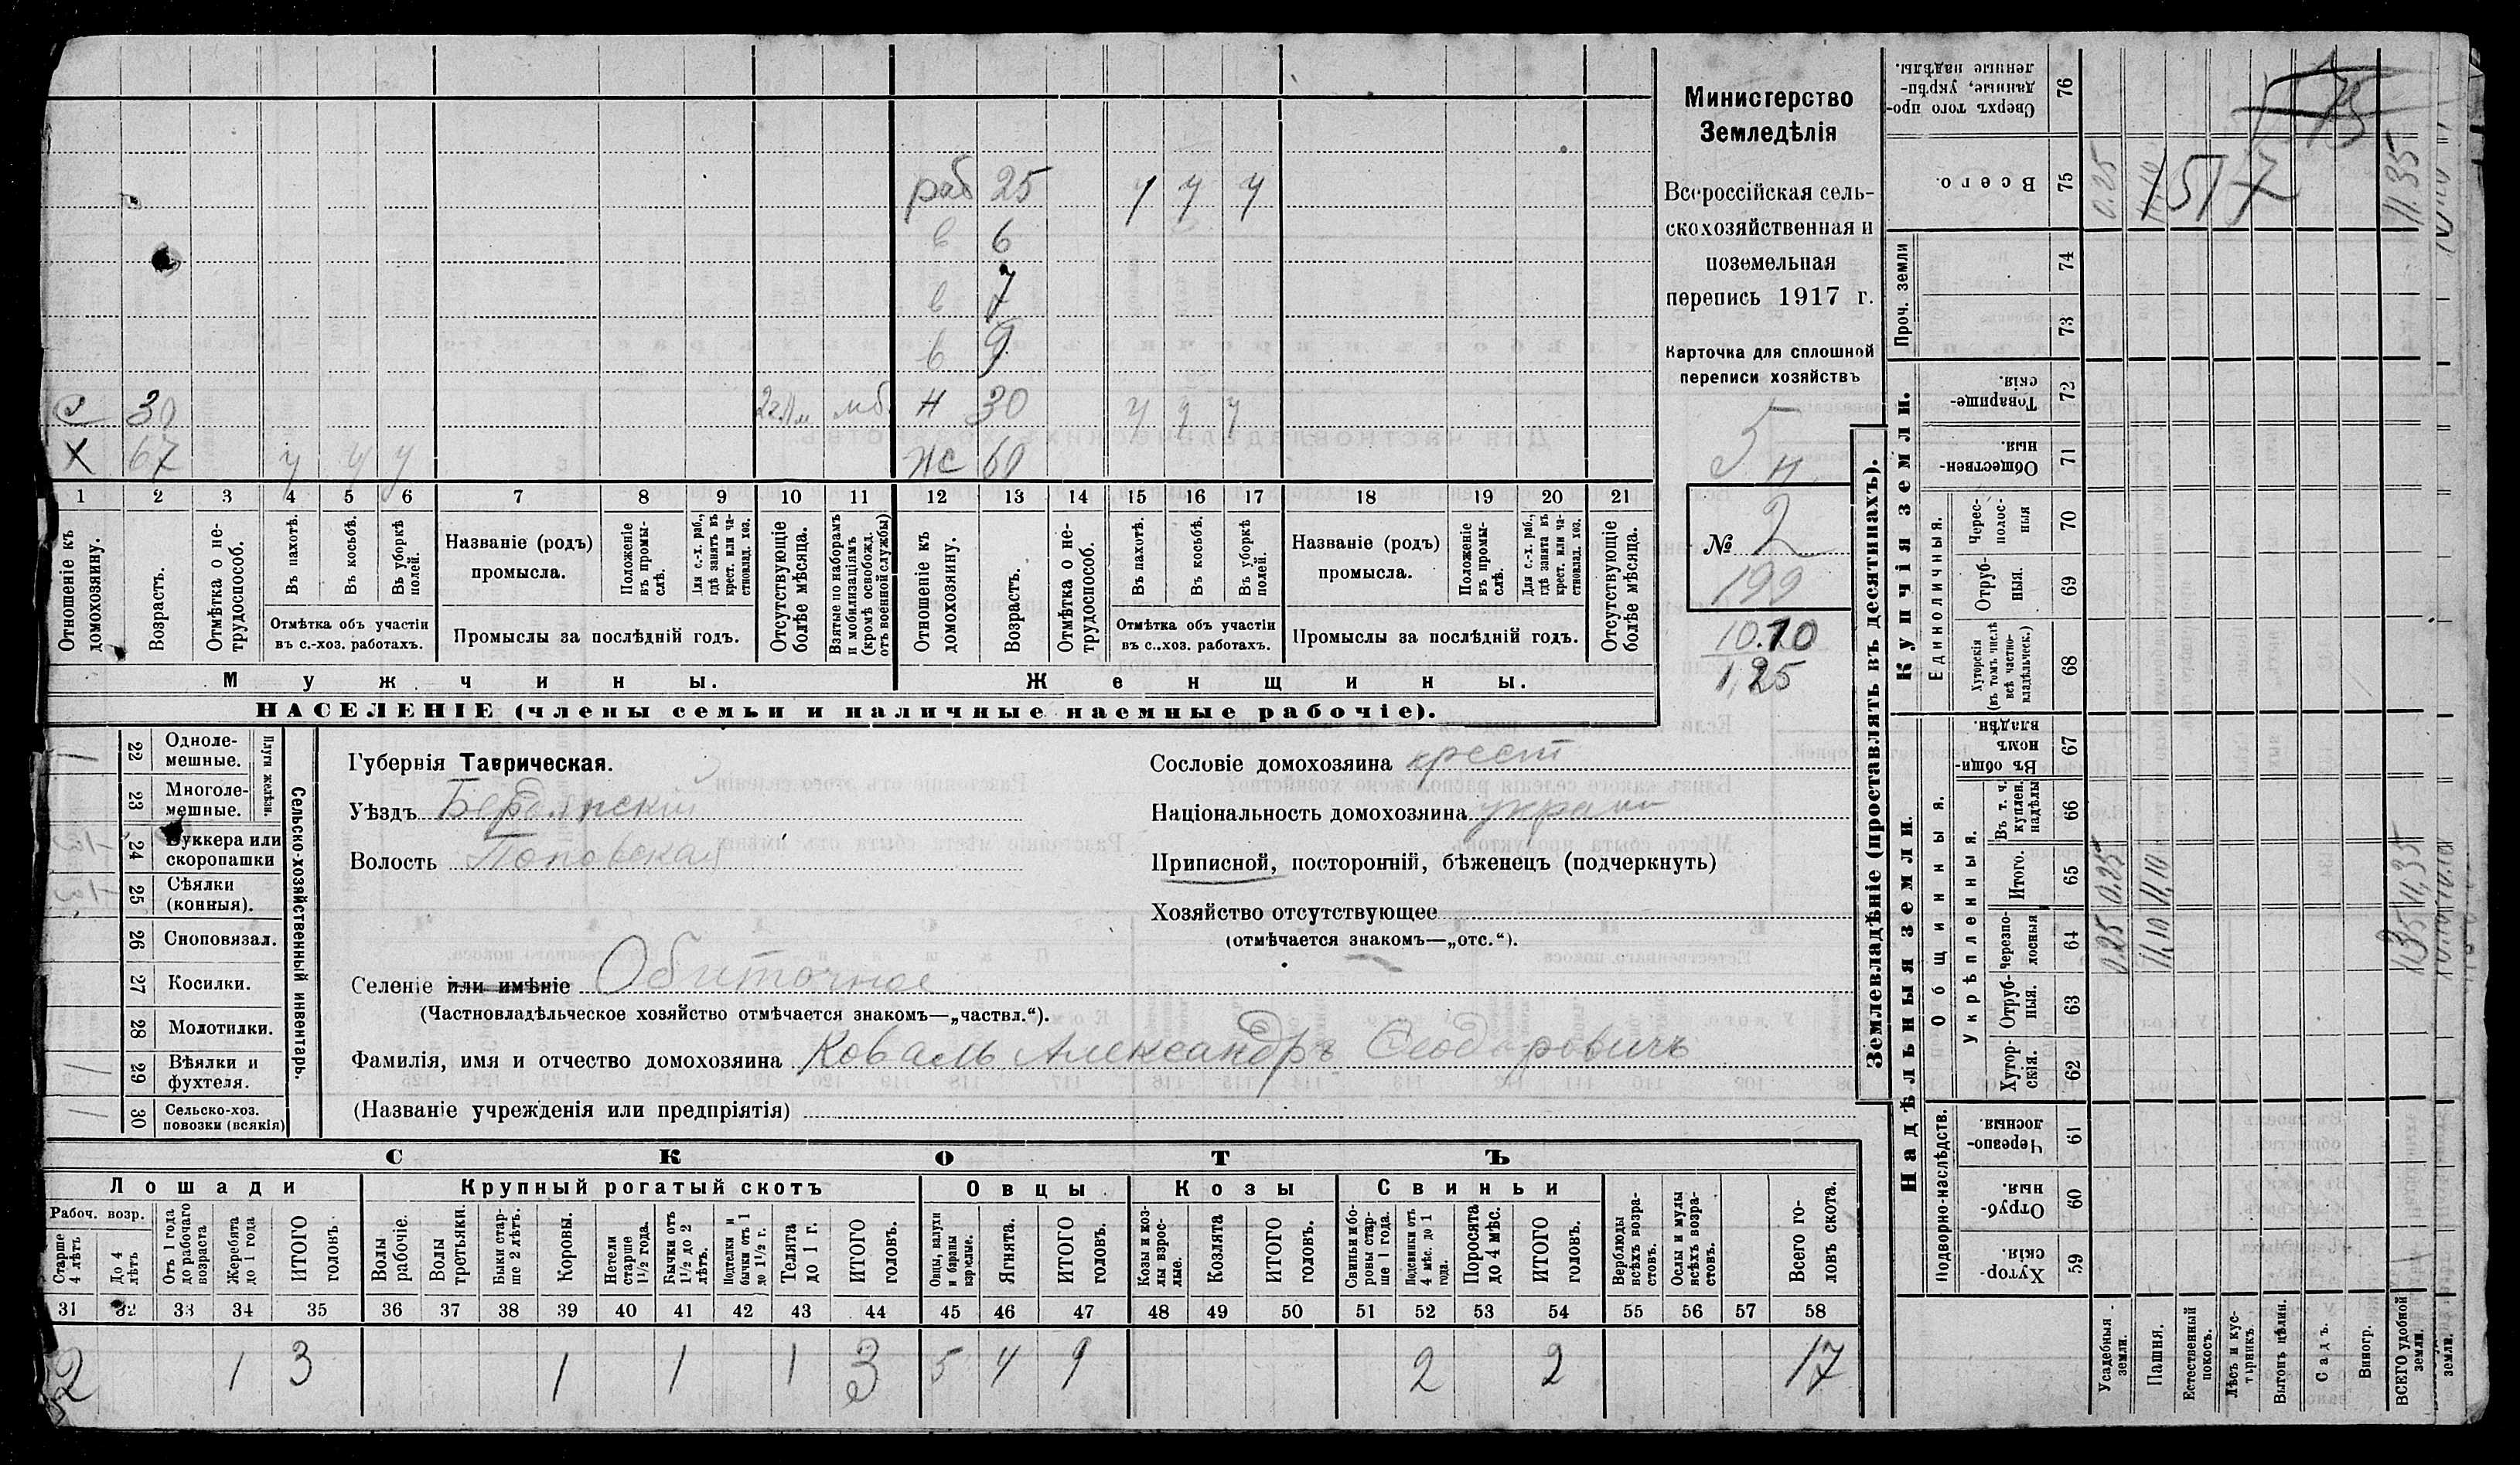 раб 25 у у у
в 6
в 7
в 9
с 30 мб. н 30 у у у
х 67 у у у жс 60
1 2 3 4 5 6 7 8 9 10 11 12 13 14 15 16 17 18 19 20 21
Отношеніе къ домохозяину.
Возрастъ.
Отмѣтка о нетрудоспособ.
Въ пахотѣ.
Въ косьбѣ.
Въ уборкѣ полей.
Отмѣтка объ участіи
въ с.-хоз. работахъ.
Названіе (родъ)
промысла.
Положеніе въ промы-слѣ.
Для с.-х. раб., гдѣ занятъ въ крест. или ча-стновлад. хоз.
Промыслы за послѣдній годъ.
Отсутствующіе болѣе мѣсяца.
Взятые по наборамъ и мобилизаціямъ (кромѣ освобожд. отъ военной службы)
Отношеніе къ домохозяину.
Возрастъ.
Отмѣтка о не-трудоспособ.
Въ пахотѣ.
Въ косьбѣ.
Въ уборкѣ полей.
Отмѣтка объ участіи
въ с.-хоз. работахъ.
Названіе (родъ)
промысла.
Положеніе въ промы-слѣ.
Для с.-х. раб., гдѣ занята въ крест. или ча-стновлад. хоз.
Промыслы за послѣдній годъ.
Отсутствующіе болѣе мѣсяца.
Мужчины. Женщины.
НАСЕЛЕНІЕ (члены семьи и наличные наемные рабочіе).
Министерство
Земледѣлія
Всероссійская сель-
скохозяйственная и
поземельная
перепись 1917 г.
Карточка для сплошной
переписи хозяйствъ
5 н
№ 2
199
10.10
1,25
Сельско-хозяйственный инвентарь.
Плуги желѣзн.
22 Однолемешные.
23 Многолемешные.
24 Буккера или скоропашки
25 Сѣялки (конныя).
26 Сноповязал.
27 Косилки.
28 Молотилки.
29 Вѣялки и фухтеля.
30 Сельско-хоз. повозки (всякія)
Губернія Таврическая.
Уѣздъ Бердянскій
Волость Поповская
Сословіе домохозяина крест
Національность домохозяина украин
Приписной, посторонній, бѣженецъ (подчеркнуть)
Хозяйство отсутствующее
(отмѣчается знакомъ—„отс.“).
Селеніе или имѣніе Обиточное
(Частновладѣльческое хозяйство отмѣчается знакомъ—„частвл.“).
Фамилія, имя и отчество домохозяина Коваль Александръ Феодоровичъ
(Названіе учрежденія или предпріятія)
СКОТЪ
Лошади Крупный рогатый скотъ Овцы Козы Свиньи
Рабоч. возр.
Старше 4 лѣтъ
До 4 лѣтъ
Отъ 1 года до рабочаго возраста
Жеребята до 1 года
ИТОГО головъ
Волы рабочіе.
Волы третьяки.
Быки стар-ше 2 лѣтъ.
Коровы.
Нетели старше 1½ года.
Бычки отъ 1½ до 2 лѣтъ.
Подтелки и бычки отъ 1 до 1½ г.
Телята до 1 г.
ИТОГО головъ.
Овцы, валухи и бараны взрослые.
Ягнята.
ИТОГО головъ.
Козы и коз-лы взрос-лые.
Козлята
ИТОГО головъ.
Свиньи и бо-ровы стар-ше 1 года.
Подсвинки отъ 4 мѣс. до 1 года.
Поросята до 4 мѣс.
ИТОГО головъ.
Верблюды всѣхъ возра-стовъ.
Ослы и мулы всѣхъ возра-стовъ.
Всего го-ловъ скота.
31 32 33 34 35 36 37 38 39 40 41 42 43 44 45 46 47 48 49 50 51 52 53 54 55 56 57 58
2 1 3 1 1 1 3 5 4 9 2 2 17
Землевладѣніе (проставлять въ десятинахъ).
Сверхъ того про-данные, укрѣп-ленные надѣлы. 76
Всего. 75
Проч. земли 74 73
Купчія земли.
Товарище-скія. 72
Обществен-ныя. 71
Единоличныя.
Черес-полос-ныя 70
Отруб-ныя. 69
Хуторскія (въ томъ числѣ всѣ частно-владѣльческ.) 68
Надѣльныя земли
Общинныя.
Въ общи-номъ владѣн. 67
Укрѣпленныя.
Въ т. ч. куплен. надѣлы 66
Итого. 65
Черезпо-лосныя 64
Отруб-ныя. 63
Хутор-скія. 62
Подворно-наслѣдств.
Черезпо-лосныя. 61
Отруб-ныя. 60
Хутор-скія. 59
Усадебныя земли.
Пашня.
Естественный покосъ.
Лѣсъ и кус-тарникъ.
Выгонъ цѣлин.
Садъ.
Виногр.
ВСЕГО удобной земли.
1517
0.25 11.35
0.25 0.25
11,10 11,10
11,35 11,35